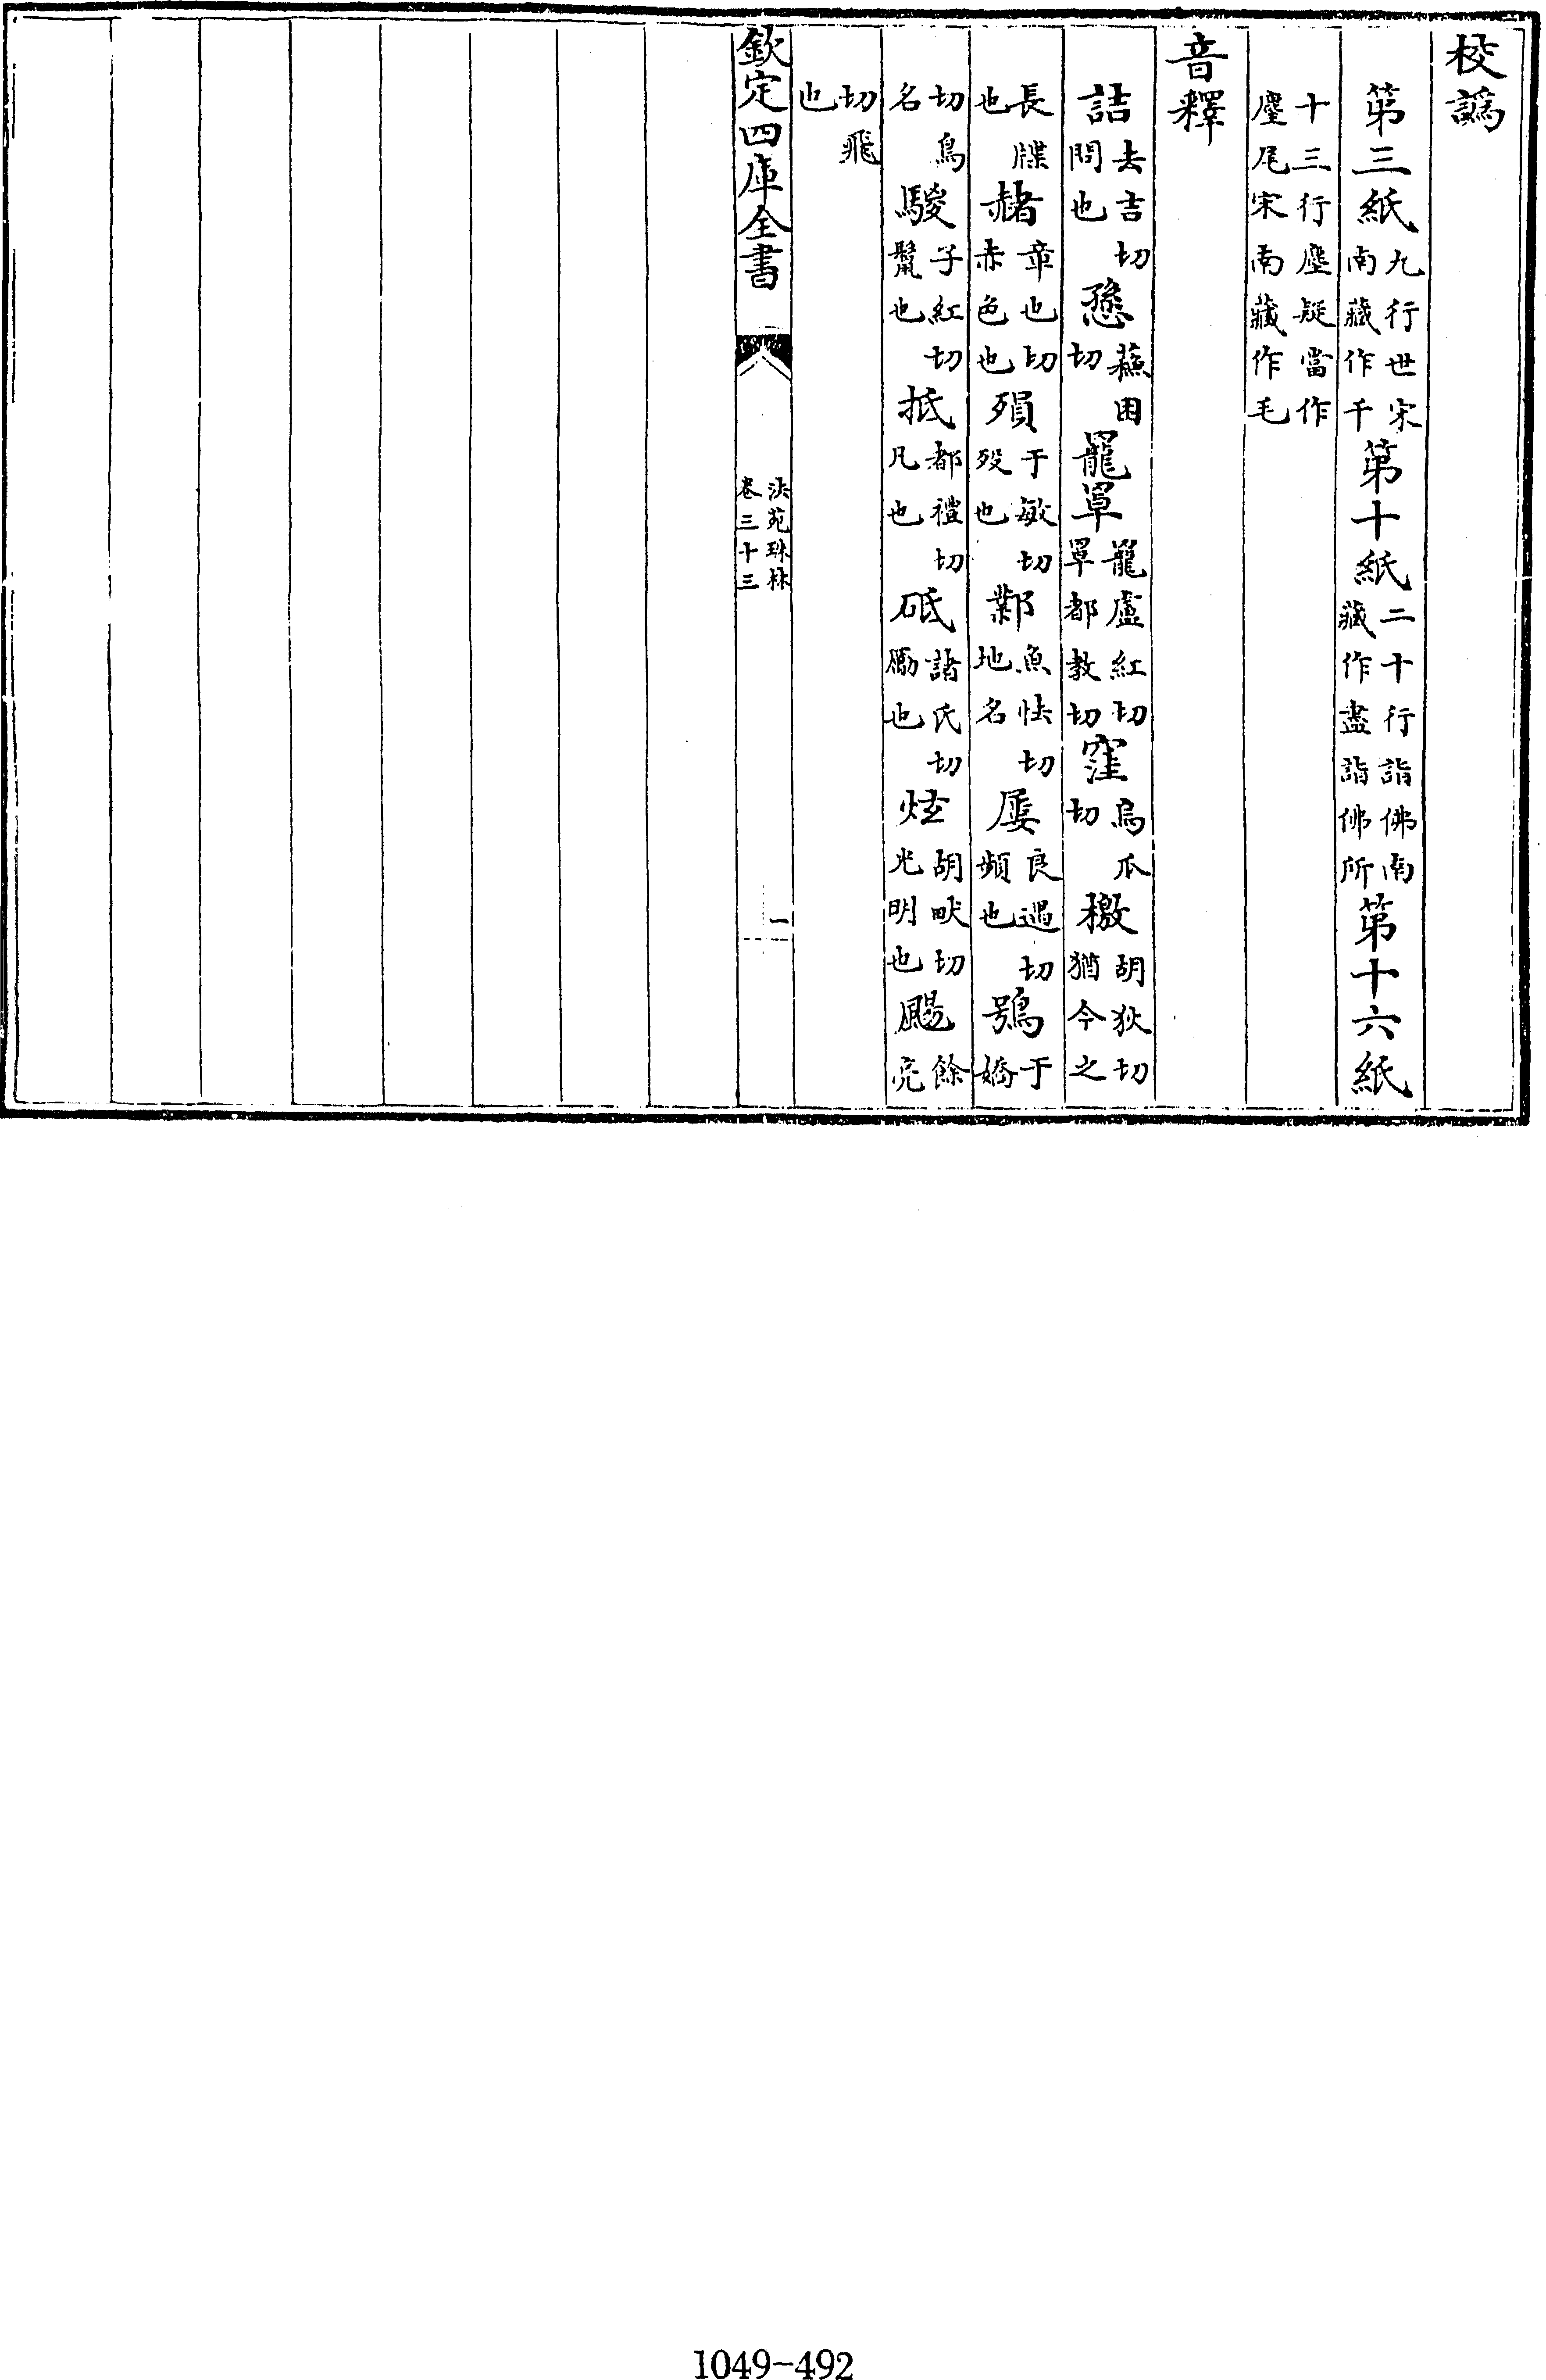 校譌
第三紙九行世宋南藏作千第十紙二十行詣佛南藏作盡詣佛所第十六紙
十三行塵疑當作麈尾宋南藏作毛
音釋
詰去吉切問也愻蘓困切罿罩罿盧紅切罩都教切窪烏瓜切檄胡狄切猶今之
長牒也赭章也切赤色也殞于敏切歿也鄴魚怯切地名屢良遇切頻也鴞于嬌
切鳥名騣子紅切鬣也抵都禮切凡也砥諸氏切厲也炫胡畎切光明也颺餘亮
切飛也
欽定四庫全書
法苑珠林
卷三十三
一
1049-492